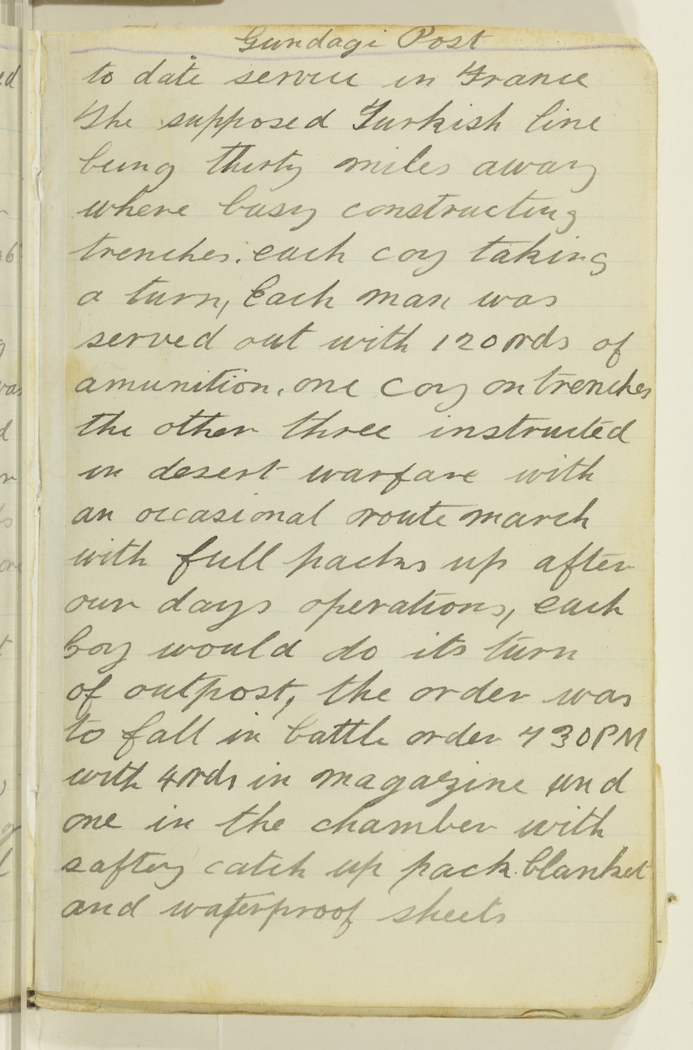 Gundagi Post
to date service in France
The supposed Turkish line
being thirty miles away
where busy constructing
trenches. each coy taking
a turn, Each man was
served out with 120 rds of
amunition. one coy on trenches
the other three instructed
in desert warfare with
an occasional route march
with full packs up after
our days operations, each
Coy would do its turn
of outpost, the order was
to fall in battle order 7 30 PM
with 4 rds in magazine and
one in the chamber with
saftey catch up pack. blanket
and waterproof sheets